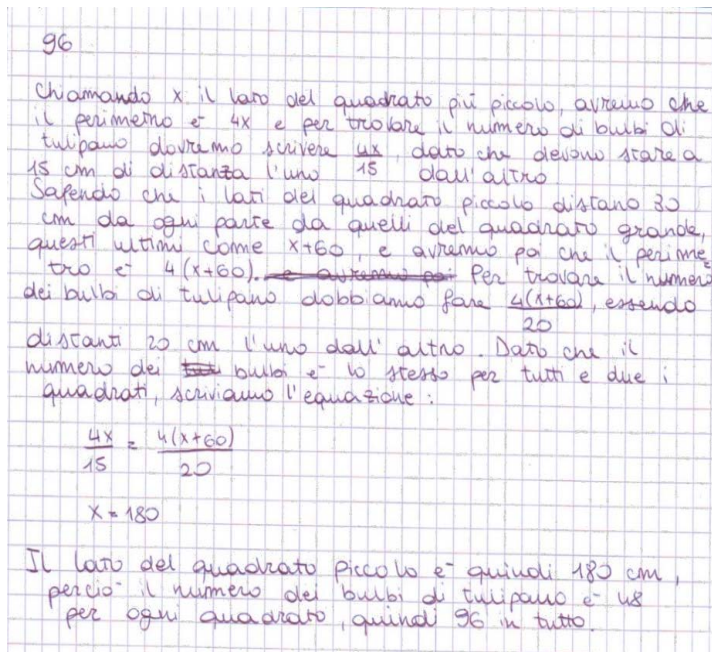 96
Chiamando x il lato del quadrato più piccolo, avremo che
il perimetro è 4x e per trovare il numero di bulbi di
tulipano dovremo scrivere 4x/15, dato che devono stare a
15 cm di distanza l'uno dall'altro.
Sapendo che i lati del quadrato piccolo distano 30
cm da ogni parte da quelli del quadrato grande,
questi ultimi come x+60, e avremo poi che il perime
tro è 4(x+60). e avremo poi Per trovare il numero
dei bulbi di tulipano dobbiamo fare 4(x+60)/20, essendo
distanti 20 cm l'uno dall'altro. Dato che il
numero dei bulbi è lo stesso per tutti e due i
quadrati, scriviamo l'equazione:
4x/15 = 4(x+60)/20
x = 180
Il lato del quadrato piccolo è quindi 180 cm,
perciò il numero dei bulbi di tulipano è 48
per ogni quadrato, quindi 96 in tutto.